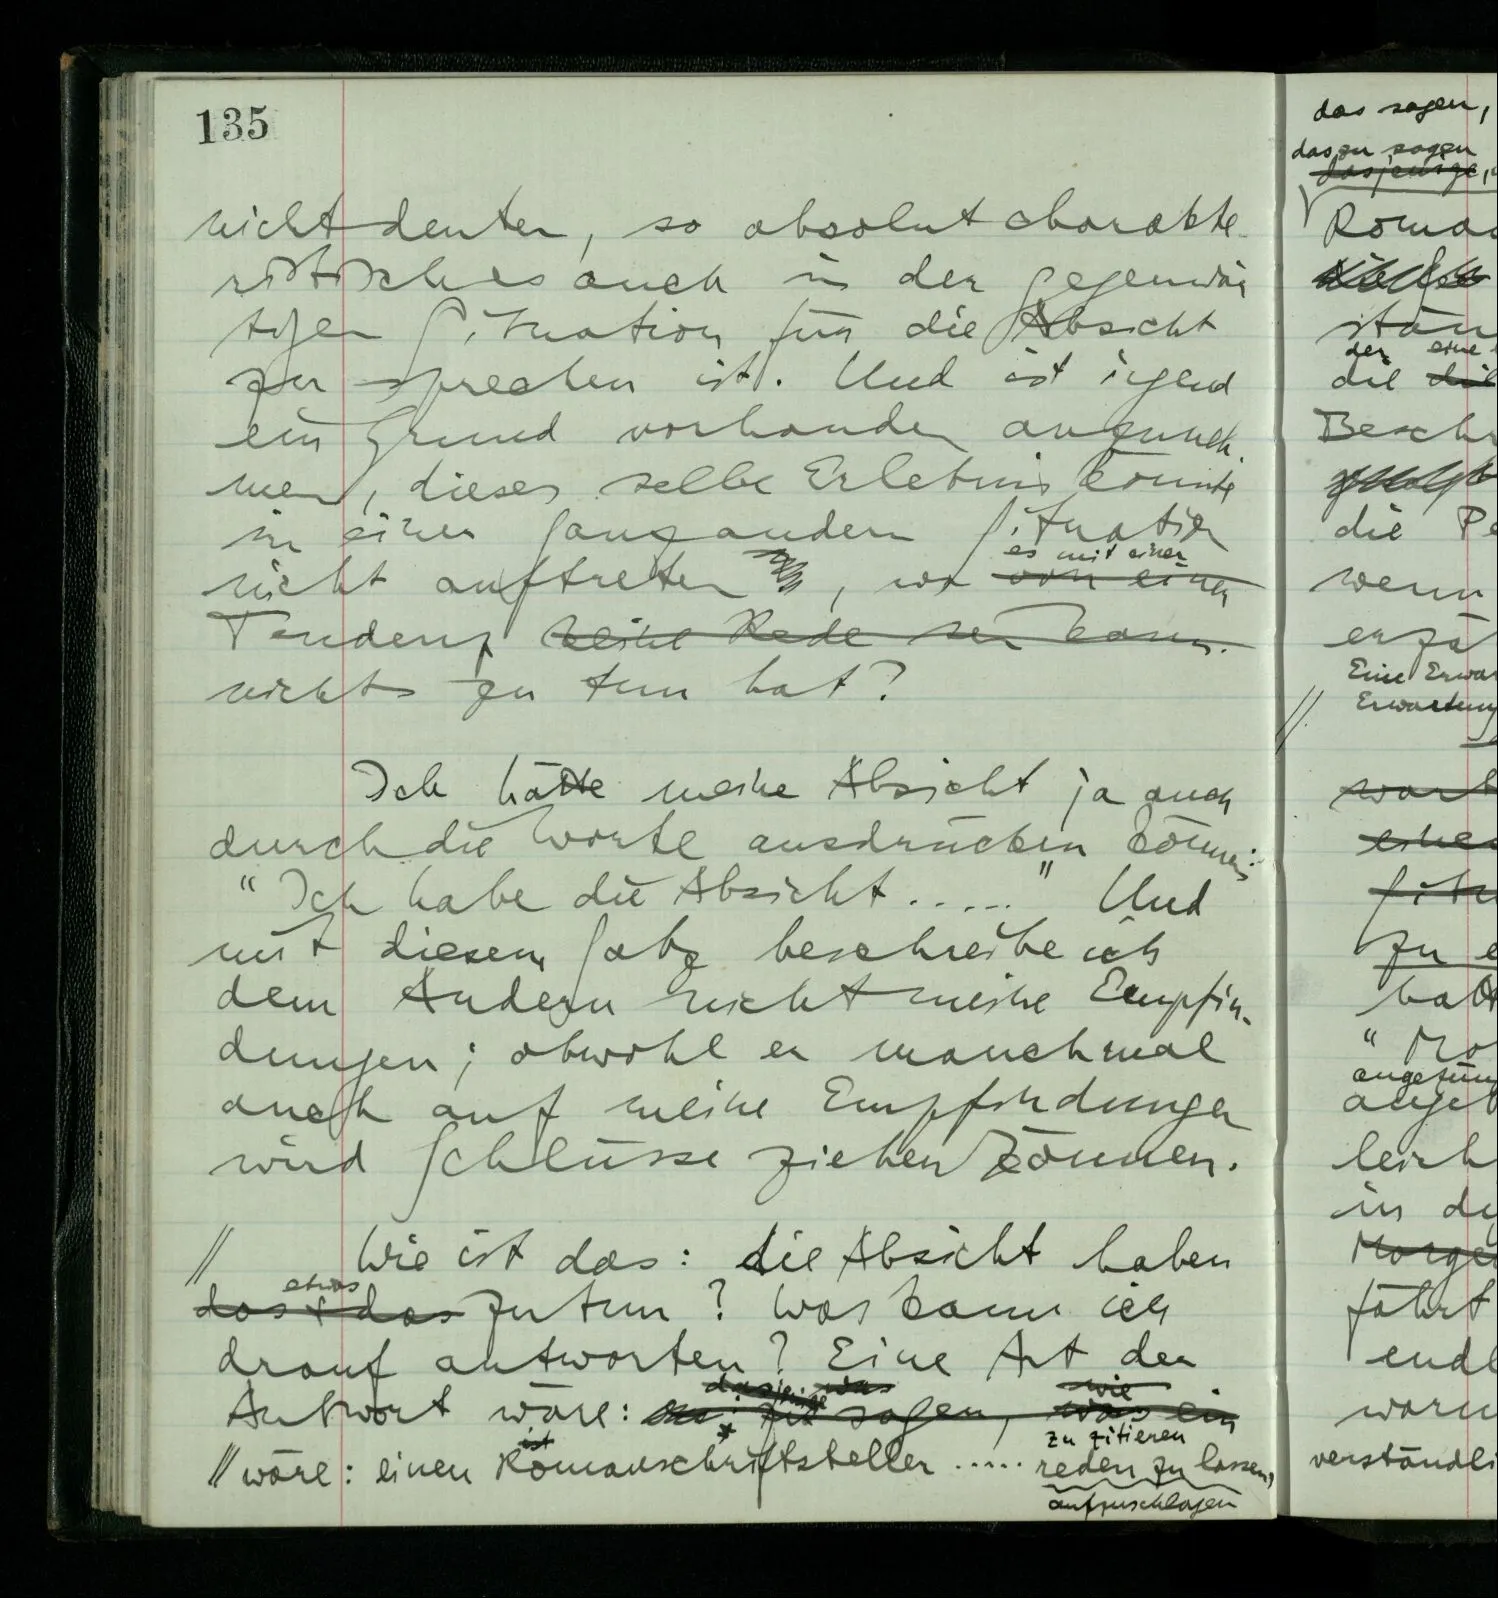 135
nicht denten, so absolut charakte-
ristisches auch in der gegenwär
tigen Situation für die Absicht
zu sprechen ist. Und ist irgend
ein Grund vorhanden anzuneh-
men, dieses selbe Erlebnis könnte
in einer ganz andern Situation
es mit einer
nicht auftreten, wo von einer
Tendenz keine Rede sein kann.
nichts zu tun hat?
Ich hätte meine Absicht ja auch
durch die Worte ausdrücken können:
"Ich habe die Absicht ....." Und
mit diesem Satz beschreibe ich
dem Andern nicht meine Empfin-
dungen; obwohl er manchmal
auch auf meine Empfindungen
wird Schlüsse ziehen können.
// Wie ist das: die Absicht haben
etwas
das & das zu tun? Was kann ich
drauf antworten? Eine Art der
dasjenige was wie
Antwort wäre: zu sagen, was ein
ist zu zitieren
// wäre: einen Romanschriftsteller ..... reden zu lassen,
aufzuschlagen
das sagen,
das zu sagen
dasjenige,
Roman
stän
der eine
die die
Beschr
die Pe
wenn
erzä
Eine Erwar
// Erwartung
wart
eines
Situ
zu e
hat
"Mo
angezün
angeb
leich
in de
Morge
führt
endl
waru
verständli